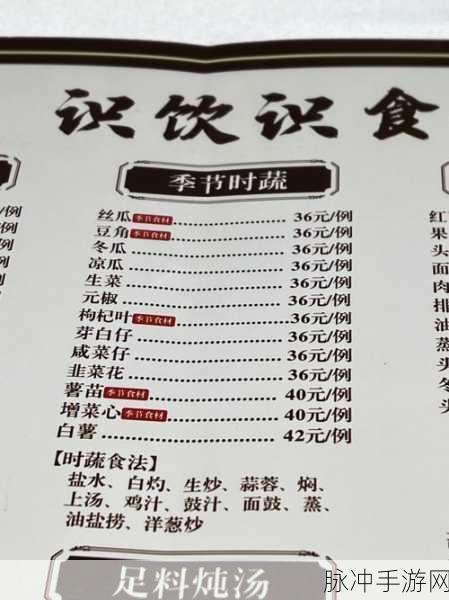 识饮识食
季节时蔬
丝瓜 季节食材 36元/例
豆角 季节食材 36元/例
冬瓜 36元/例
凉瓜 36元/例
生菜 36元/例
元椒 36元/例
枸杞叶 季节食材 36元/例
芽白仔 36元/例
咸菜仔 36元/例
韭菜花 36元/例
薯苗 季节食材 40元/例
增菜心 季节食材 40元/例
白薯 42元/例
【时蔬食法】
盐水、白灼、生炒、蒜蓉、焖、
上汤、鸡汁、鼓汁、面鼓、蒸、
油盐捞、洋葱炒
足料炖汤
/例
/例
/例
/例
/例
红
果
头
面
肉
排
油
蒸
头
冬
头
脉冲手游网